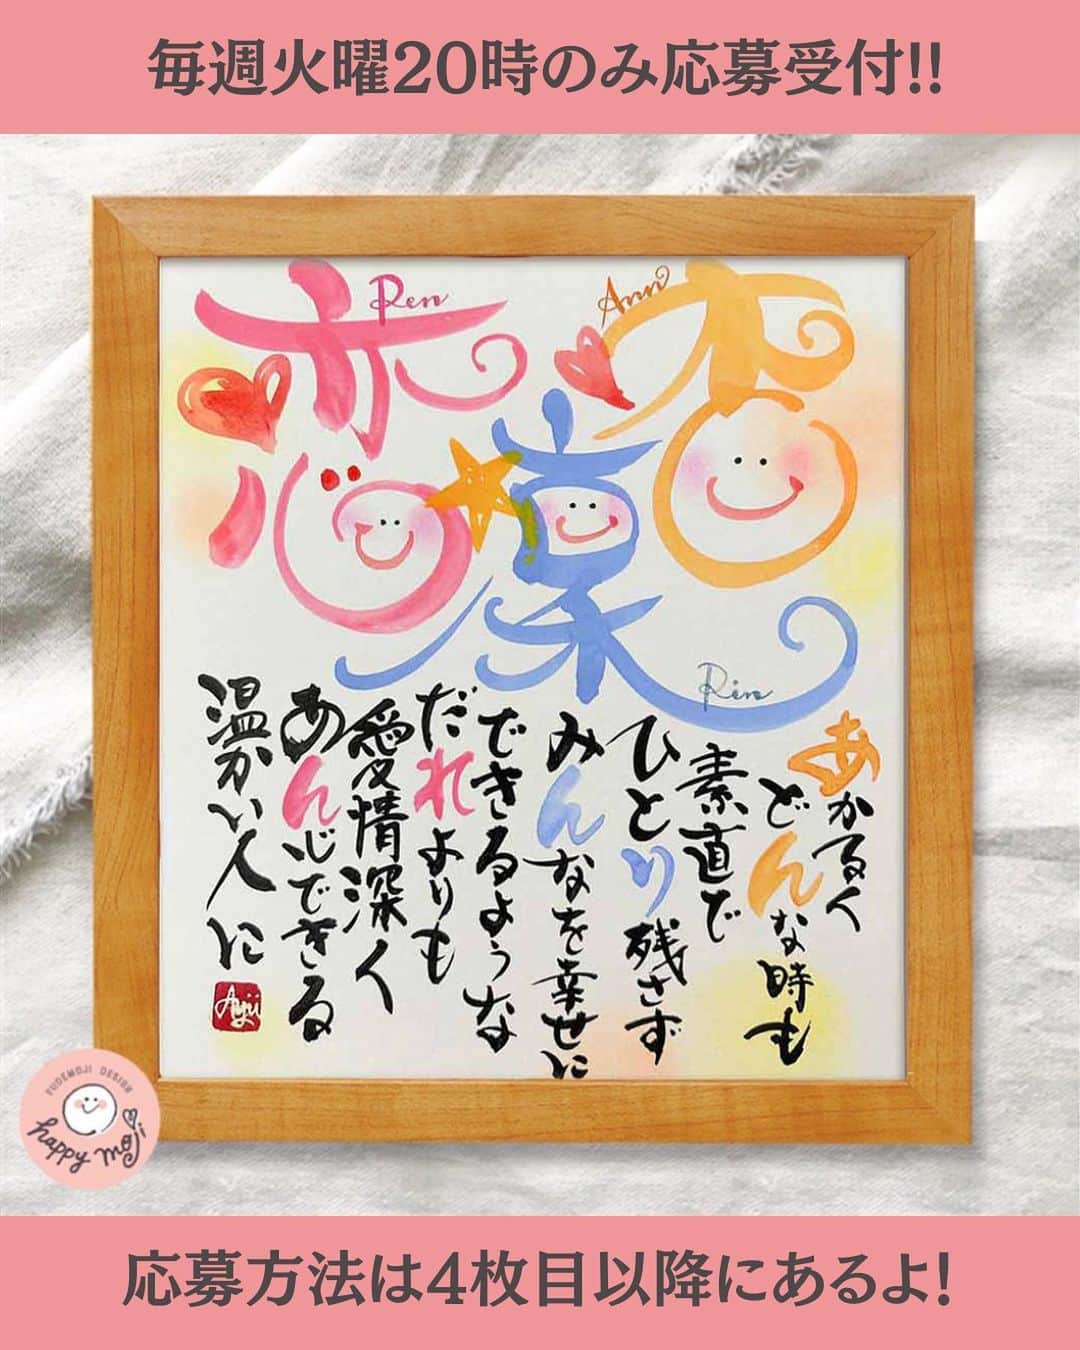 毎週火曜20時のみ応募受付!!
恋
Ren
杏
Ann
凜
Rin
あかるく
どんな時も
素直で
ひとり残さず
みんなを幸せに
できるような
だれよりも
愛情深く
あんじできる
温かい人に
Ayii
FUDEMOJI DESIGN
happy moji
応募方法は4枚目以降にあるよ!